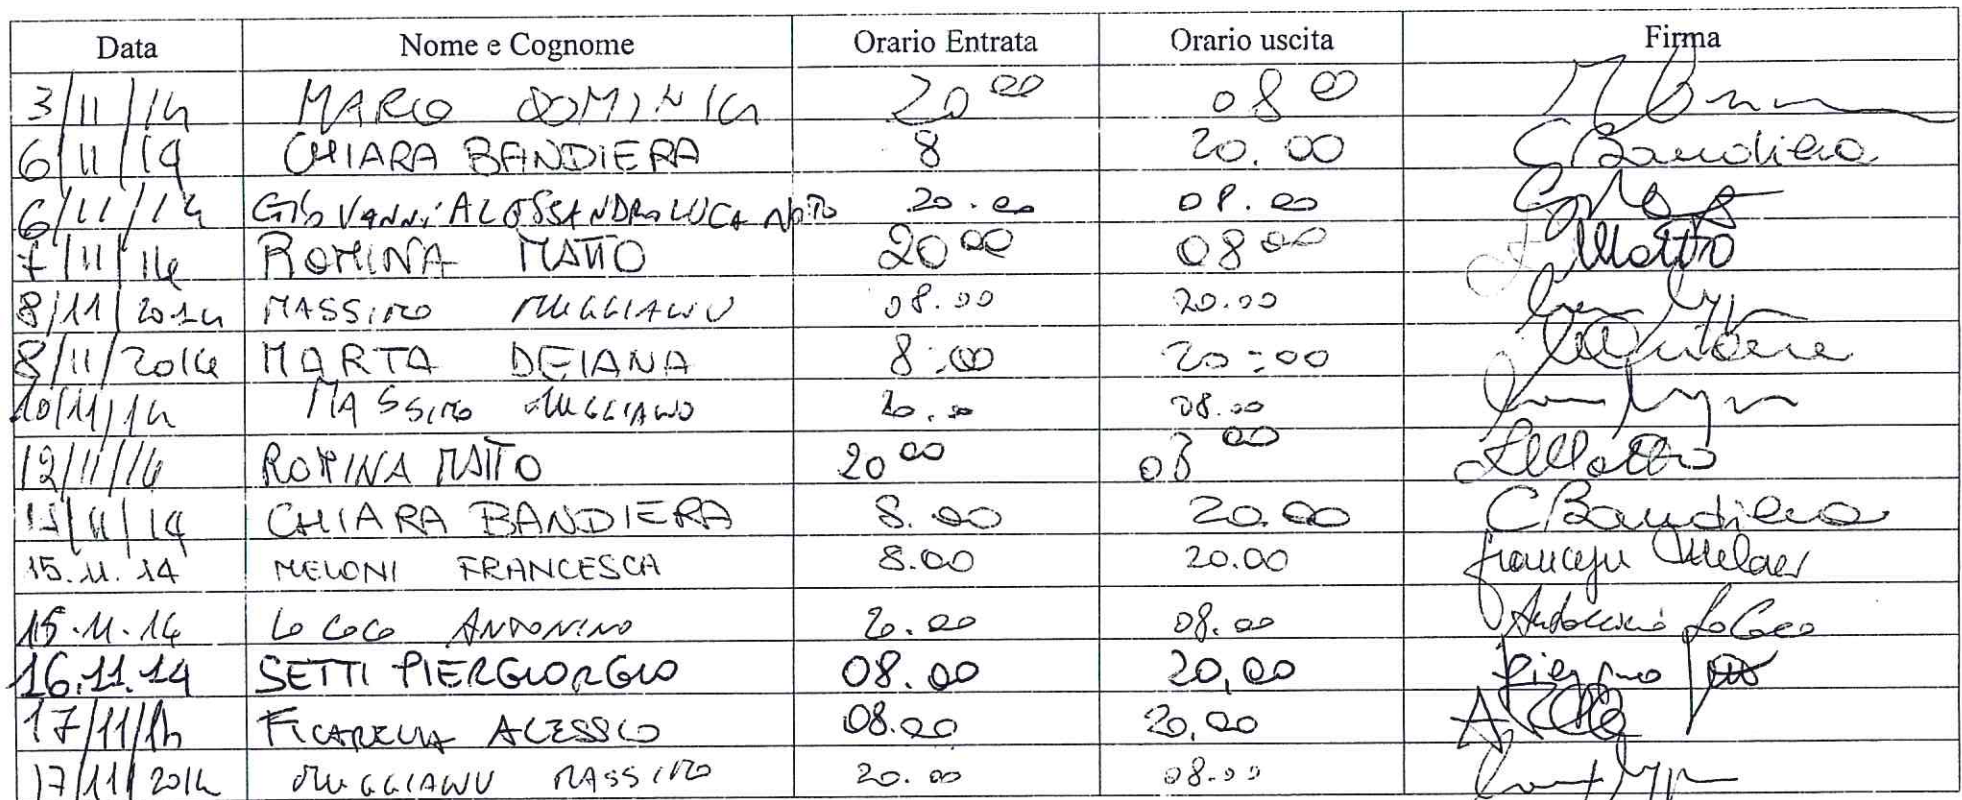 Data Nome e Cognome Orario Entrata Orario uscita Firma
3/11/14 MARCO 20 00 08 00
6/11/14 CHIARA BANDIERA 8 20.00 C Bandiera
6/11/14 GIOVANNI ALESSANDRO LUCA NOTO 20.00 08.00
7/11/14 ROMINA MATTO 20 00 08 00 Matto
8/11/2014 MASSIMO MUGGIANU 08.00 20.00
8/11/2014 MARTA DEIANA 8:00 20:00
10/11/14 MASSIMO MUGGIANU 20.00 08.00
12/11/14 ROMINA MATTO 20 00 08 00
CHIARA BANDIERA 8.00 20.00 C Bandiera
15.11.14 MELONI FRANCESCA 8.00 20.00 Francesca Meloni
15.11.14 LO COCO ANTONINO 20.00 08.00 Antonino Lo Coco
16.11.14 SETTI PIERGIORGIO 08.00 20,00
17/11/14 FICARELLA ALESSIO 08.00 20,00
17/11/2014 MUGGIANU MASSIMO 20.00 08.00